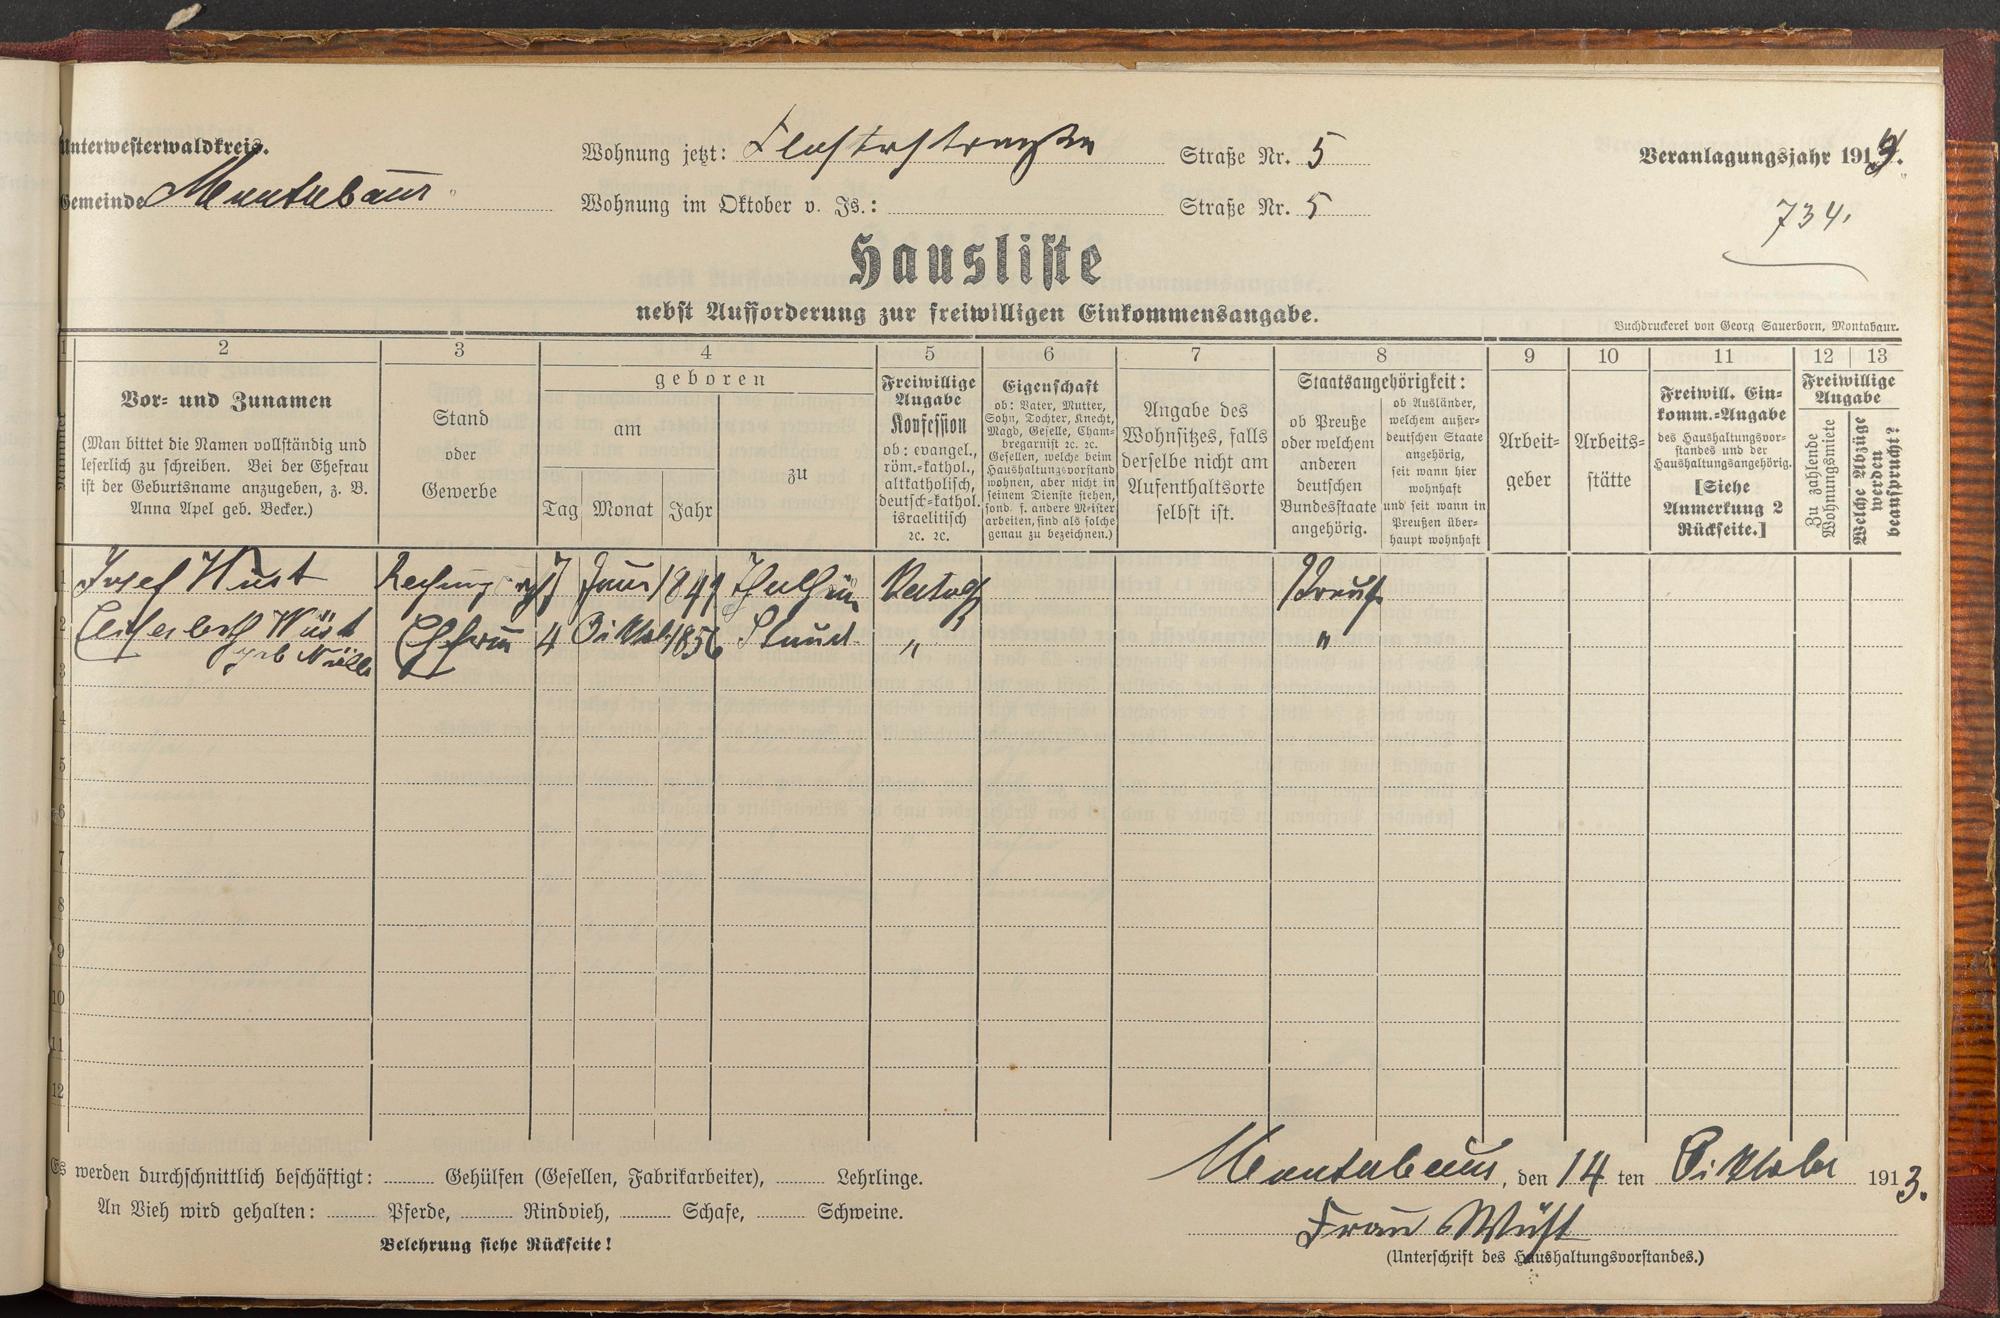 Unterwesterwaldkreis.
Wohnung jetzt: Straße Nr. 5
Veranlagungsjahr 1914.
Gemeinde Montabaur
Wohnung im Oktober v. Js.: Straße Nr. 5
734.
Hausliste
nebst Aufforderung zur freiwilligen Einkommensangabe.
Buchdruckerei von Georg Sauerborn, Montabaur.
1 2 3 4 5 6 7 8 9 10 11 12 13
Nummer
Vor- und Zunamen
(Man bittet die Namen vollständig und
leserlich zu schreiben. Bei der Ehefrau
ist der Geburtsname anzugeben, z. B.
Anna Apel geb. Becker.)
Stand
oder
Gewerbe
geboren
am
Tag Monat Jahr
zu
Freiwillige
Angabe
Konfession
ob: evangel.,
röm.-kathol.,
altkatholisch,
deutsch-kathol.
israelitisch
2c. 2c.
Eigenschaft
ob: Vater, Mutter,
Sohn, Tochter, Knecht,
Magd, Geselle, Cham-
bregarnist 2c. 2c.
Gesellen, welche beim
Haushaltungsvorstand
wohnen, aber nicht in
seinem Dienste stehen,
sond. f. andere Meister
arbeiten, sind als solche
genau zu bezeichnen.)
Angabe des
Wohnsitzes, falls
derselbe nicht am
Aufenthaltsorte
selbst ist.
Staatsangehörigkeit:
ob Preuße
oder welchem
anderen
deutschen
Bundesstaate
angehörig.
ob Ausländer,
welchem außer-
deutschen Staate
angehörig,
seit wann hier
wohnhaft
und seit wann in
Preußen über-
haupt wohnhaft
Arbeit-
geber
Arbeits-
stätte
Freiwill. Ein-
komm.-Angabe
des Haushaltungsvor-
standes und der
Haushaltungsangehörig.
[Siehe
Anmerkung 2
Rückseite.]
Freiwillige
Angabe
Zu zahlende
Wohnungsmiete
Welche Abzüge
werden
beansprucht?
1 Josef Wüst 7 Janr 1849 Preuß
2 Elisabeth Wüst Ehefrau 4 Oktob. 1856 Staudt " "
geb
3
4
5
6
7
8
9
10
11
12
Es werden durchschnittlich beschäftigt: Gehülfen (Gesellen, Fabrikarbeiter), Lehrlinge.
An Vieh wird gehalten: Pferde, Rindvieh, Schafe, Schweine.
Belehrung siehe Rückseite!
Montabaur, den 14 ten Oktober 1913.
Frau Wüst
(Unterschrift des Haushaltungsvorstandes.)